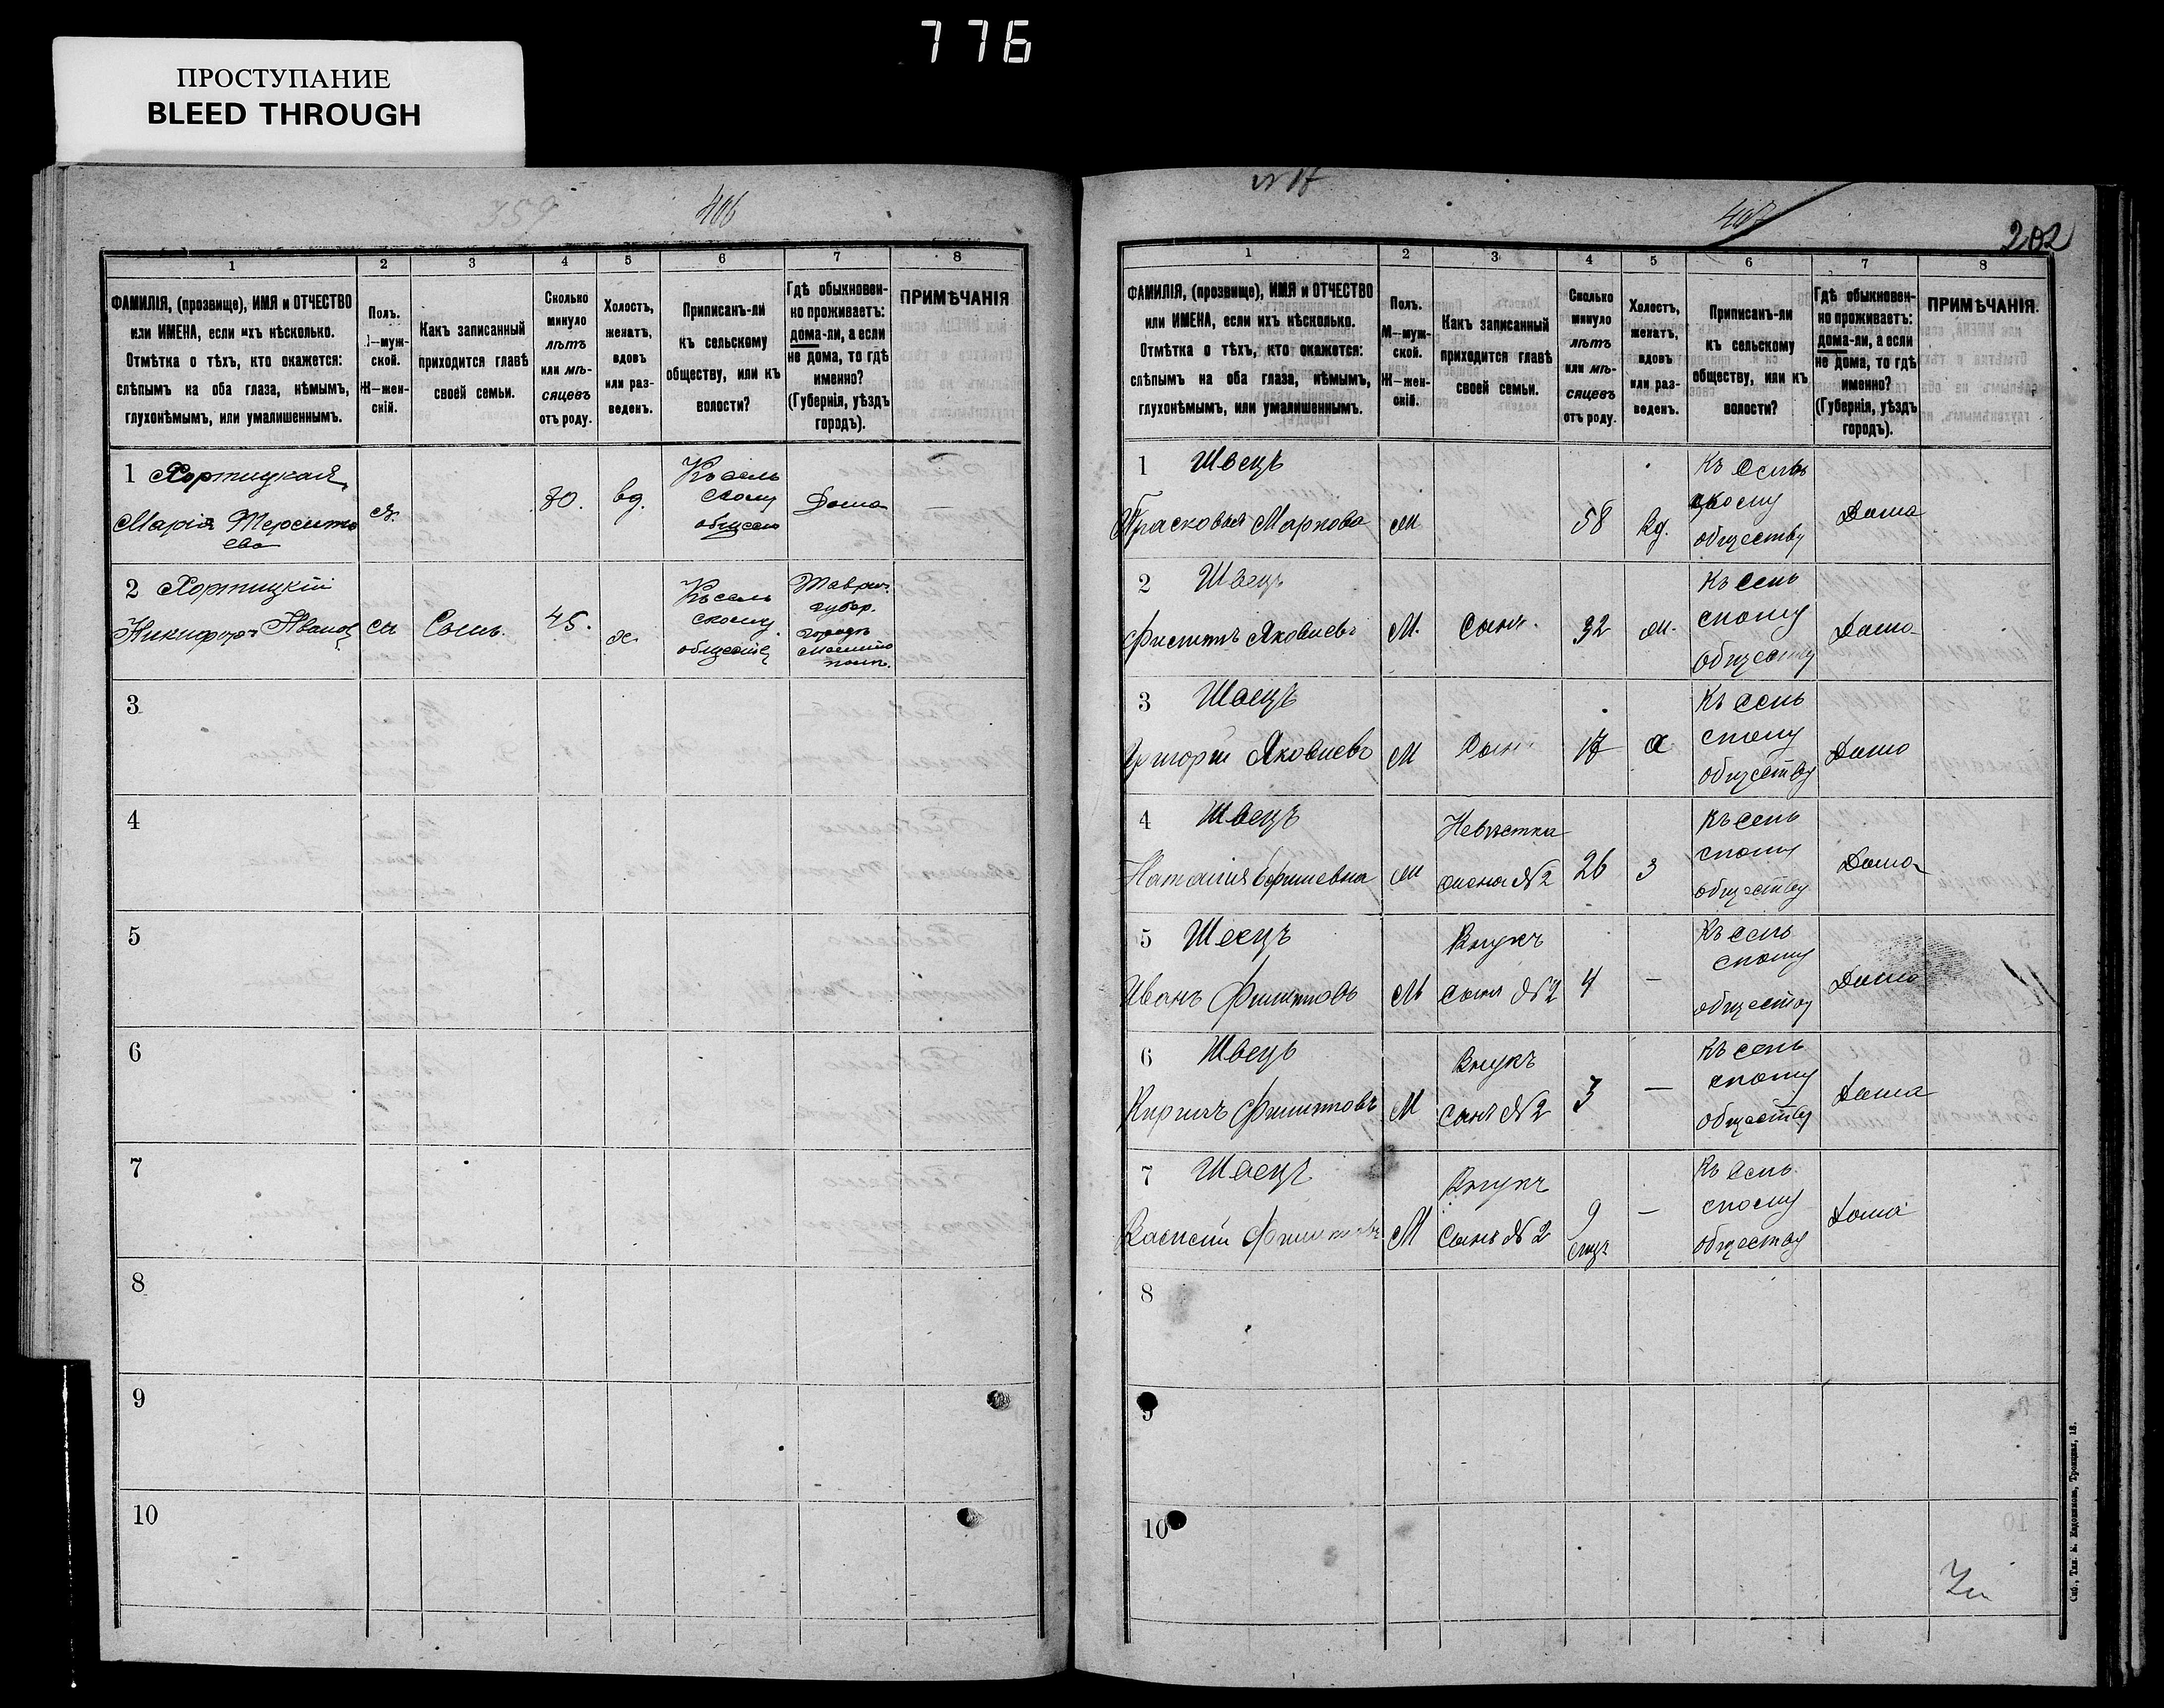 776
ПРОСТУПАНИЕ
BLEED THROUGH
359
406
1 2 3 4 5 6 7 8
ФАМИЛІЯ, (прозвище), ИМЯ и ОТЧЕСТВО
или ИМЕНА, если ихъ нѣсколько.
Отмѣтка о тѣхъ, кто окажется:
слѣпымъ на оба глаза, нѣмымъ,
глухонѣмымъ, или умалишеннымъ.
Полъ.
М—муж-
ской.
Ж—жен-
скій.
Какъ записанный
приходится главѣ
своей семьи.
Сколько
минуло
лѣтъ
или мѣ-
сяцевъ
отъ роду.
Холостъ,
женатъ,
вдовъ
или раз-
веденъ.
Приписанъ-ли
къ сельскому
обществу, или къ
волости?
Гдѣ обыкновен-
но проживаетъ:
дома-ли, а если
не дома, то гдѣ
именно?
(Губернія, уѣздъ
городъ).
ПРИМѢЧАНІЯ
1 Хортицкая
Марія
вд.
Къ сель
скому
Дома
—
2 Хортицкій
Никифоръ Иванов
Сынъ.
45.
х.
Къ сель
скому
обществ
губер.
городъ
3
4
5
6
7
8
9
10
№ 17
407
202
1 2 3 4 5 6 7 8
ФАМИЛІЯ, (прозвище), ИМЯ и ОТЧЕСТВО
или ИМЕНА, если ихъ нѣсколько.
Отмѣтка о тѣхъ, кто окажется:
слѣпымъ на оба глаза, нѣмымъ,
глухонѣмымъ, или умалишеннымъ.
Полъ.
М—муж-
ской.
Ж—жен-
скій.
Какъ записанный
приходится главѣ
своей семьи.
Сколько
минуло
лѣтъ
или мѣ-
сяцевъ
отъ роду.
Холостъ,
женатъ,
вдовъ
или раз-
веденъ.
Приписанъ-ли
къ сельскому
обществу, или къ
волости?
Гдѣ обыкновен-
но проживаетъ:
дома-ли, а если
не дома, то гдѣ
именно?
(Губернія, уѣздъ
городъ).
ПРИМѢЧАНІЯ.
1 Швецъ
Прасковья Маркова
58
вд.
Къ сель
скому
обществу
Дома
2 Швецъ
Филиппъ Яковлевъ
М.
Сынъ.
32
Къ сель
скому
обществу
Дома
3 Швецъ
Григорій Яковлевъ
М
Сынъ
17
х
Къ сель
скому
обществу
Дома
4 Швецъ
Наталія
Невѣстка
жена №2
26
З
Къ сель
скому
обществу
Дома
5 Швецъ
Иванъ Филипповъ
М
Внукъ
сынъ №2
4
—
Къ сель
скому
обществу
Дома
6 Швецъ
Кирилъ Филипповъ
М
Внукъ
сынъ №2
3
—
Къ сель
скому
обществу
Дома
7 Швецъ
Василій Филипповъ
М
Внукъ
Сынъ №2
9
—
Къ сель
скому
обществу
Дома
8
9
10